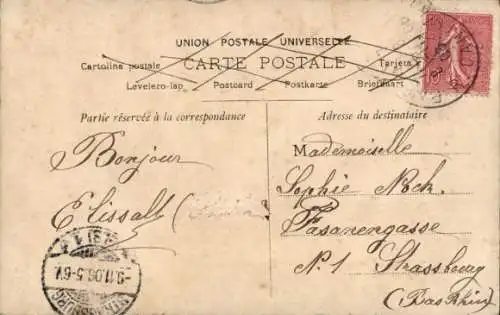 UNION POSTALE UNIVERSELLE
CARTE POSTALE
Cartolina postale
Tarjeta
Levelero-lap Postcard Postkarte Briefkaart
Partie réservée à la correspondance
Adresse du destinataire
Bonjour
Elissalt
Mademoiselle
Sophie
Fasanengasse
N.1 Strassbourg
(Bas Rhin)
9.11.06.5-6V.